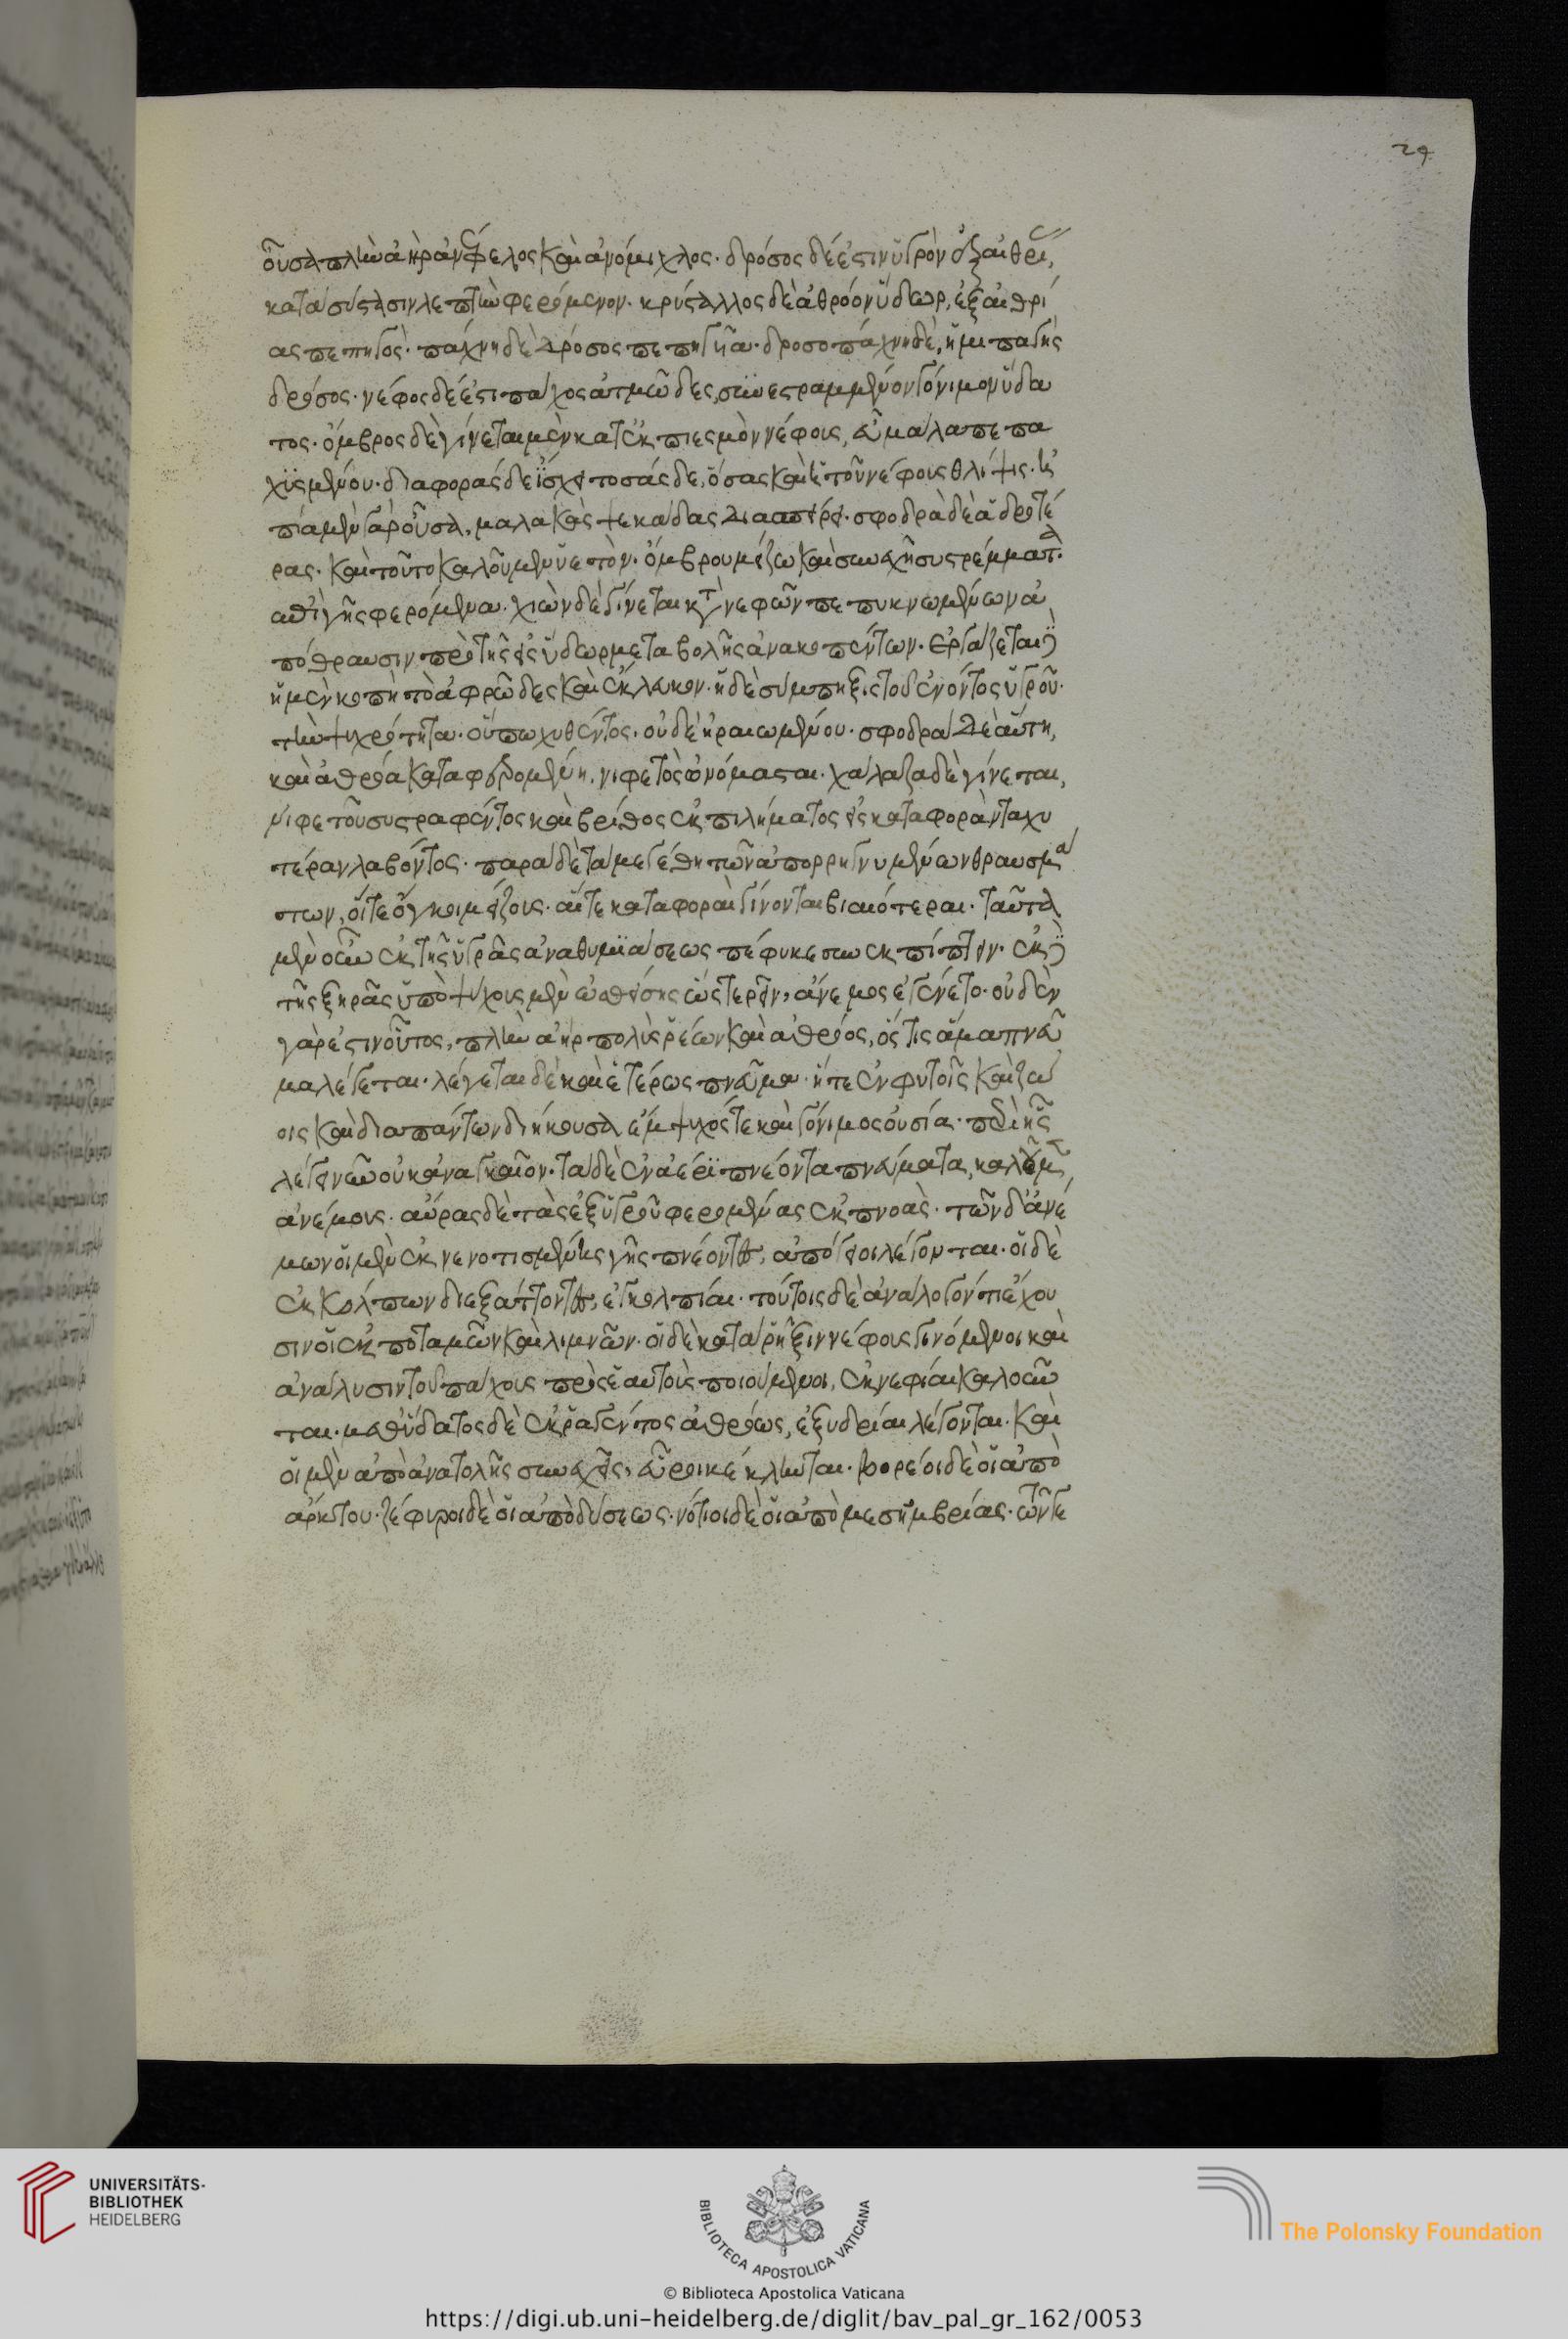 οὖσα πλὴν ἀὴρ ἀνέφελος καὶ ἀνόμιχλος. δρόσος δέ ἐστιν ὑγρὸν ἐξ αἰθρίας,
κατὰ σύστασιν λεπτὴν φερόμενον. κρύσταλλος δὲ ἀθρόον ὕδωρ, ἐξ αἰθρί
ας πεπηγός. πάχνη δὲ δρόσος πεπηγυῖα. δροσοπάχνη δὲ, ἡμιπαγὴς
δρόσος. νέφος δέ ἐστι πάχος ἀτμῶδες, συνεστραμμένον γόνιμον ὕδα
τος. ὄμβρος δὲ γίνεται μὲν κατ' ἐκπιεσμὸν νέφους, εὖ μάλα πεπα
χυσμένου. διαφορὰς δὲ ἴσχει τοσάσδε, ὅσας καὶ ἡ τοῦ νέφους θλίψις. ἠ
πία μὲν γὰρ οὖσα, μαλακὰς ψεκάδας διασπείρει. σφοδρὰ δὲ ἁδροτέ
ρας. καὶ τοῦτο καλοῦμεν ὑετὸν. ὄμβρου μείζω καὶ συνεχῆ συστρέμματα.
 γῆς φερόμενα. χιὼν δὲ γίνεται κατὰ νεφῶν πεπυκνωμένων ἀ
πόθραυσιν πρὸ τῆς εἰς ὕδωρ μεταβολῆς ἀνακοπέντων. ἐργάζεται δὲ
ἡ μὲν κοπὴ τὸ ἀφρῶδες καὶ ἔκλευκον. ἡ δὲ σύμπηξις τοῦ ἐνόντος ὑγροῦ.
τὴν ψυχρότητα. οὔπω χυθέντος. οὐδὲ ἠραιωμένου. σφοδρὰ δὲ αὕτη,
καὶ ἀθρόα καταφερομένη, νιφετὸς ὠνόμασται. χάλαζα δὲ γίνεται,
νιφετοῦ συστραφέντος καὶ βρίθος ἐκ πιλήματος εἰς καταφορὰν ταχυ
τέραν λαβόντος. παρὰ δὲ τὰ μεγέθη τῶν ἀπορρηγνυμένων θραυσμά
των, οἵ τε ὄγκοι μείζους. αἵ τε καταφοραὶ γίνονται βιαιότεραι. ταῦτα
μὲν οὖν ἐκ τῆς ὑγρᾶς ἀναθυμιάσεως πέφυκε συνεκπίπτειν. ἐκ δὲ
τῆς ξηρᾶς ὑπὸ ψύχους μὲν ὠσθείσης ὥστε ῥεῖν, ἄνεμος ἐγένετο. οὐδὲν
γάρ ἐστιν οὗτος, πλὴν ἀὴρ πολὺς ῥέων καὶ ἀθρόος, ὅστις ἅμα πνεῦ
μα λέγεται. λέγεται δὲ καὶ ἑτέρως πνεῦμα. ἥ τε ἐν φυτοῖς καὶ ζώ
οις καὶ διὰ πάντων διήκουσα ἔμψυχός τε καὶ γόνιμος οὐσία. περὶ ἧς
λέγειν νῦν οὐκ ἀναγκαῖον. τὰ δὲ ἐν ἀέρι πνέοντα πνεύματα, καλοῦμεν
ἀνέμους. αὔρας δὲ τὰς ἐξ ὑγροῦ φερομένας ἐκπνοάς. τῶν δ' ἀνέ
μων οἱ μὲν ἐκ νενοτισμένης γῆς πνέοντες, ἀπόγειοι λέγονται. οἱ δὲ
ἐκ κόλπων διεξάττοντες, ἐγκολπίαι. τούτοις δὲ ἀνάλογόν τι ἔχου
σιν οἱ ἐκ ποταμῶν καὶ λιμνῶν. οἱ δὲ κατὰ ῥῆξιν νέφους γινόμενοι καὶ
ἀνάλυσιν τοῦ πάχους πρὸς ἑαυτοὺς ποιούμενοι, ἐκνεφίαι καλοῦν
ται. μεθ' ὕδατος δὲ ἐκραγέντος ἀθρόως, ἐξυδρίαι λέγονται. καὶ
οἱ μὲν ἀπὸ ἀνατολῆς συνεχεῖς, εὖροι κέκληνται. βορέοι δὲ οἱ ἀπὸ
ἄρκτου. ζέφυροι δὲ οἱ ἀπὸ δύσεως. νότιοι δὲ οἱ ἀπὸ μεσημβρίας. τῶν τε
29
UNIVERSITÄTS-
BIBLIOTHEK
HEIDELBERG
BIBLIOTECA APOSTOLICA VATICANA
The Polonsky Foundation
© Biblioteca Apostolica Vaticana
https://digi.ub.uni-heidelberg.de/diglit/bav_pal_gr_162/0053